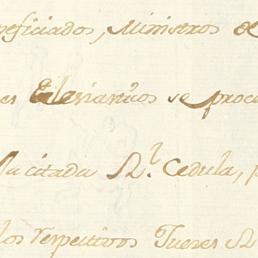 neficiados, Ministros de
es Eclesiasticos se proce
la citada Rl. Cedula, p
los respectivos Jueces R